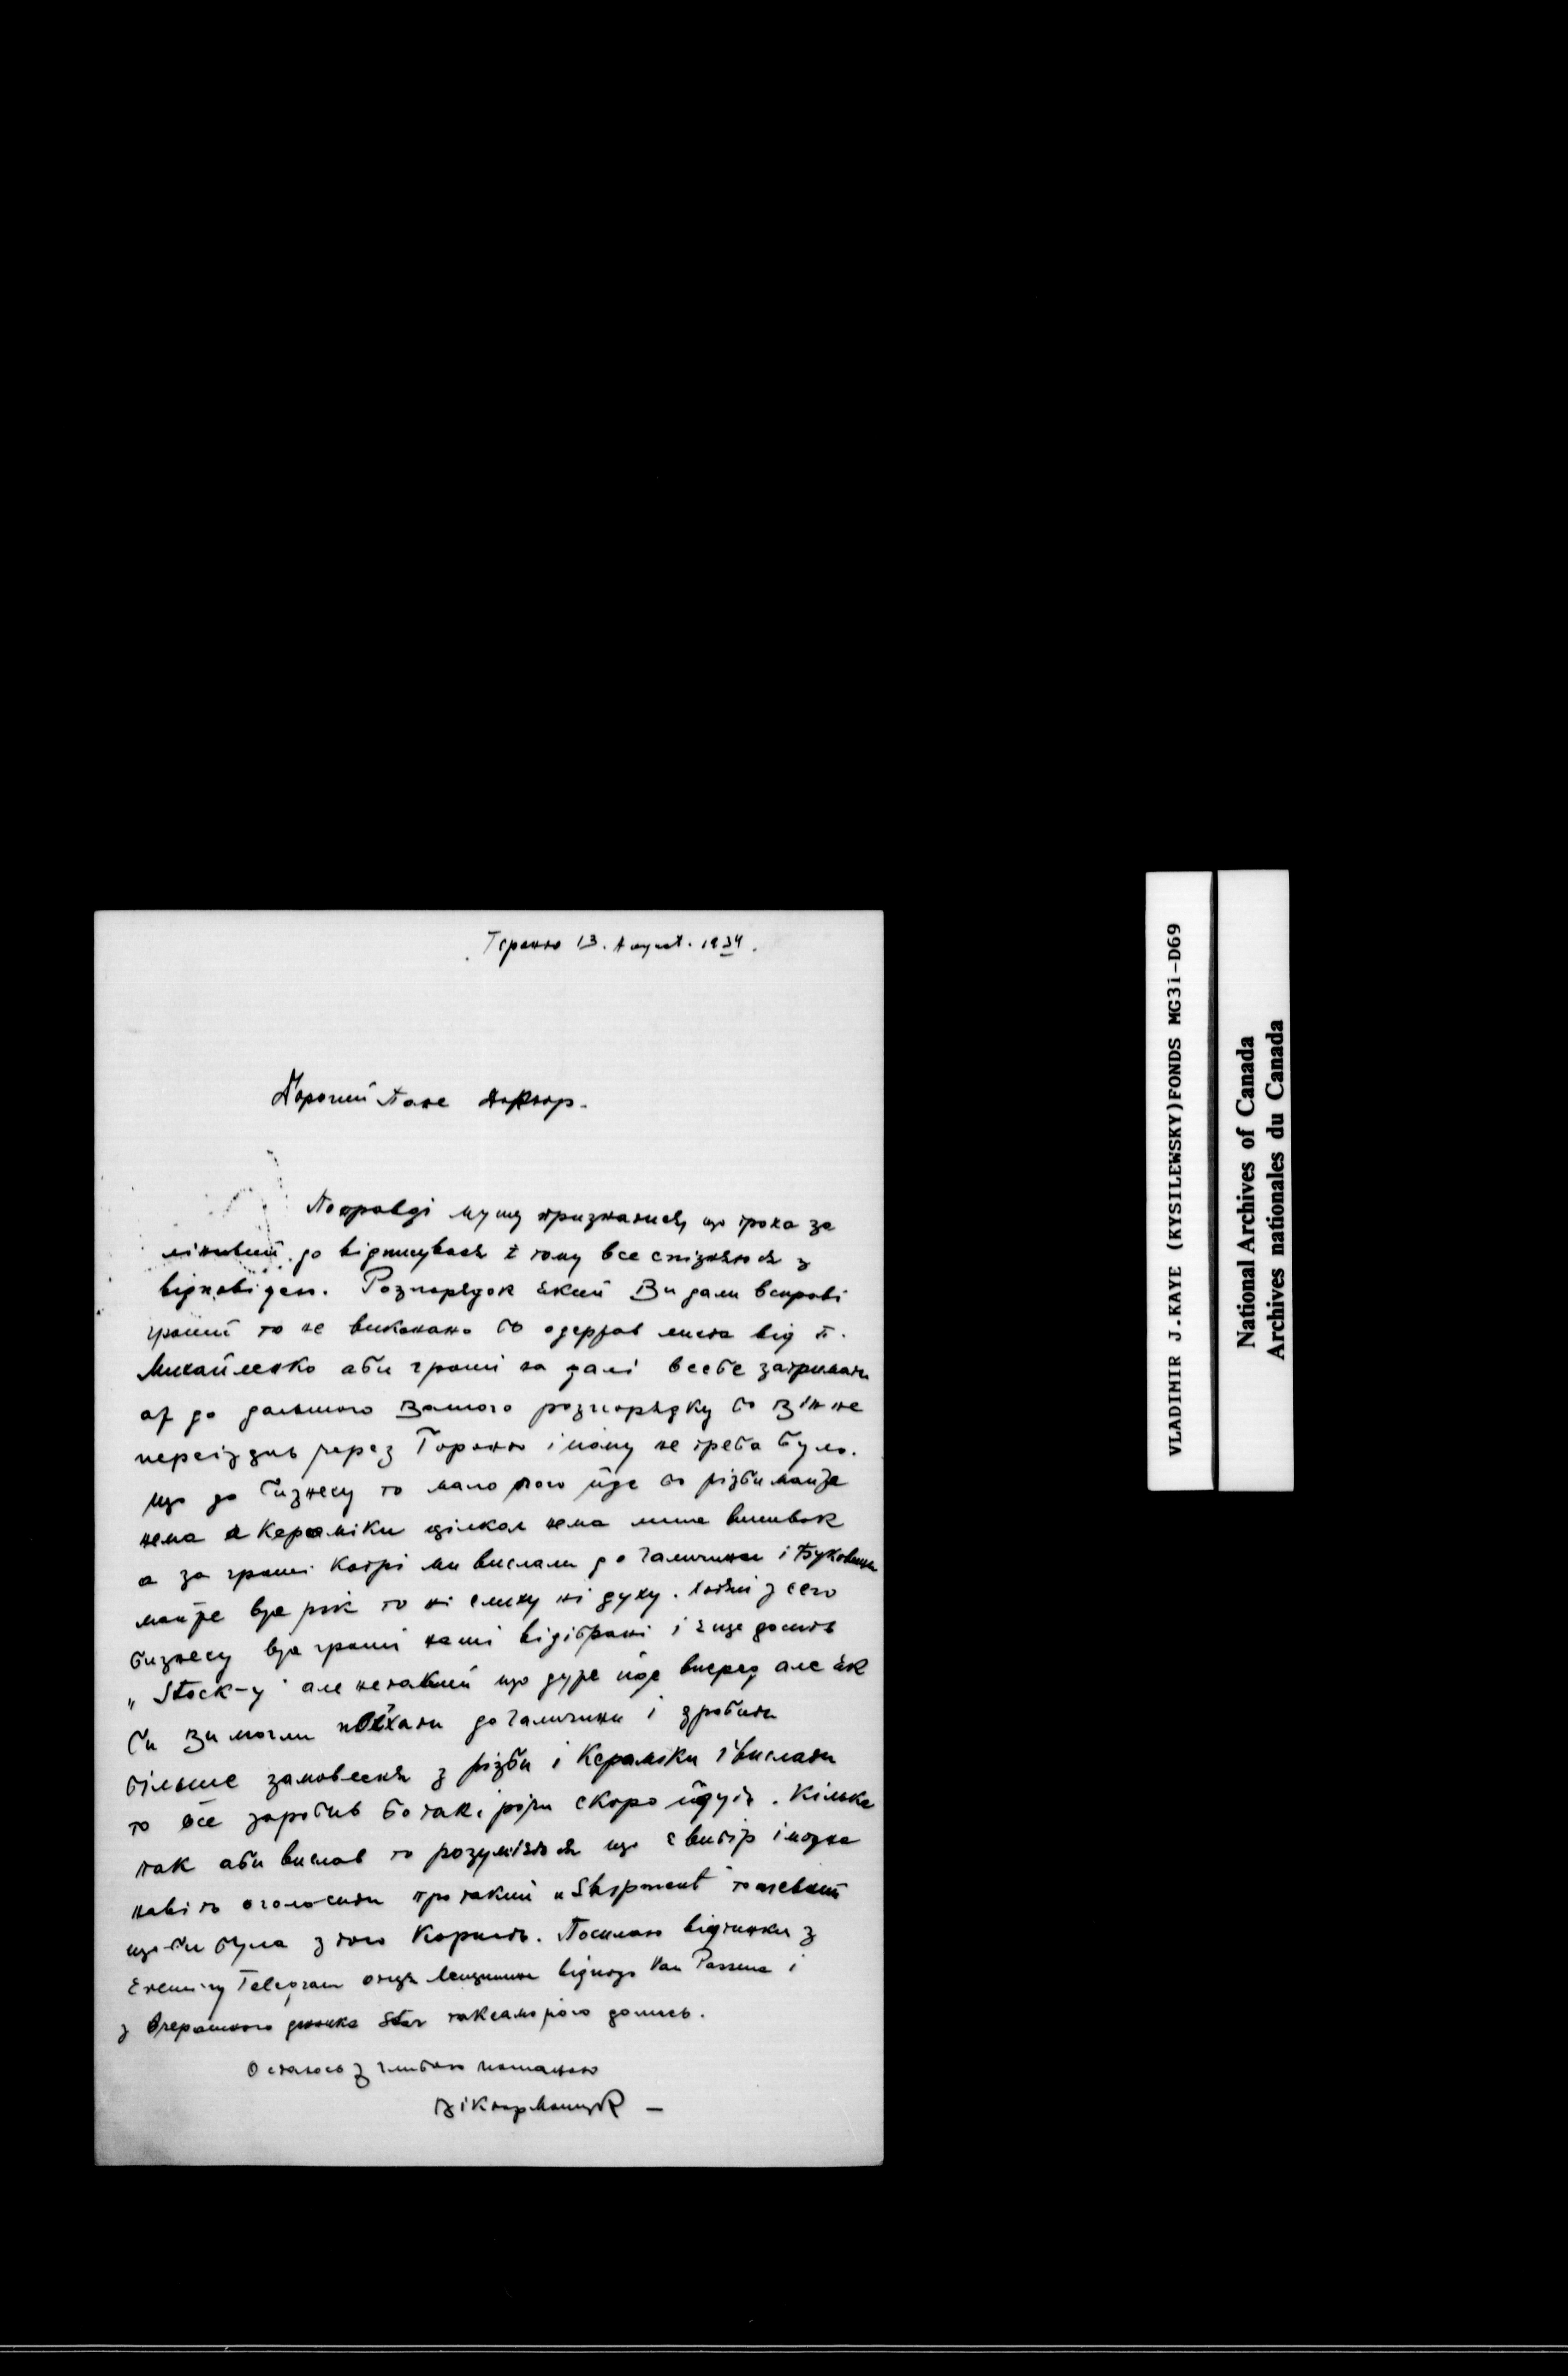 Торонто 13. August. 1934.
Дорогий Пане Доктор.
Поправді мушу признатися, що троха за
лінивий до відписування і тому все спізняюся з
відповідею. Розпорядок який Ви дали всправі
грошей то не виконано бо одержав листа від п.
Михайленко аби гроші на далі всебе затримати
аж до дальшого Вашого розпорядку бо Він не
переїздив через Торонто і йому не треба було.
Що до бизнесу то мало чого йде бо різби майже
нема а Кераміки цілком нема лише вишивок
а за гроші котрі ми вислали до Галичини і Буковини
майже вже рік то ні слиху ні духу. Хотяй з сего
бизнесу вже гроші наші відібрані і є ще досить
„Stock-у" але нетакий що дуже йде вперед але як
би Ви могли поїхати до Галичини і зробити
більше замовленя з різби і Кераміки і вислати
то все заробив бо такі річи скоро йдуть. Кілька
так аби вислав то розуміється що є вибір і можна
навіть оголосити про такий „Shipment" то певний
що би була з того Користь. Посилаю відтинки з
Evening Telegram отця відносно Van Passena і
з Вчерашного Star таксамо його допись.
Остаюсь з глибокою пошаною
Віктор
VLADIMIR J.KAYE (KYSILEWSKY)FONDS MG31-D69
National Archives of Canada
Archives nationales du Canada